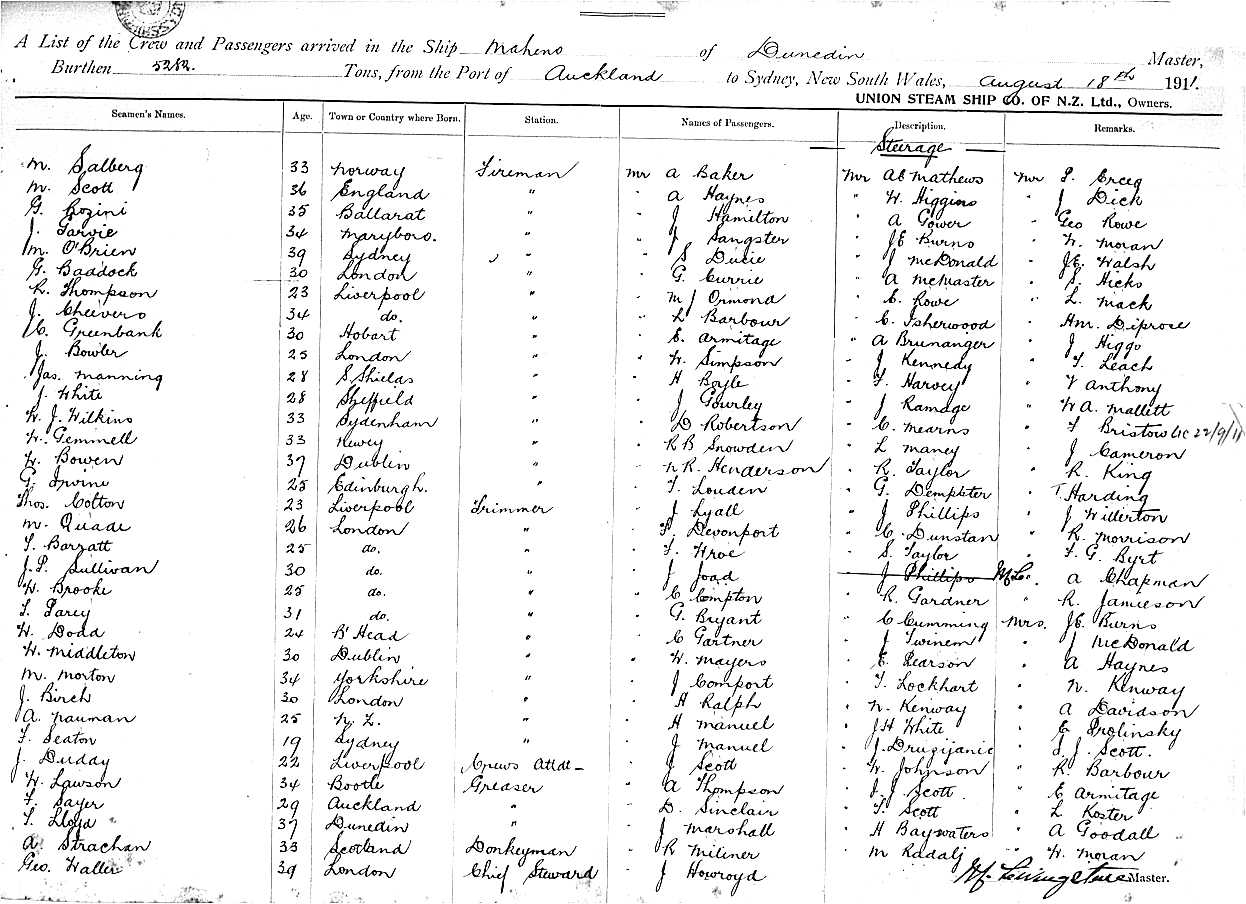 A List of the Crew and Passengers arrived in the Ship Maheno of Dunedin Master,
Burthen 5282. Tons, from the Port of Auckland to Sydney, New South Wales, August 18th 1911.
UNION STEAM SHIP CO. OF N.Z. Ltd., Owners.
Seamen's Names. Age. Town or Country where Born. Station. Names of Passengers. Description. Remarks.
Steerage
M. Salberg 33 Norway Fireman Mr A Baker Mr AE Mathews Mr
M. Scott 36 England " " A Haynes " W. Higgins " J Dick
G. 35 Ballarat " " J Hamilton " A Gower Geo Rowe
J. 34 Maryboro. " " J Sangster " JE Burns " W. Moran
M. O'Brien 39 Sydney " " S " J McDonald " JE. Walsh
G. Baddock 30 London " " G. Currie " A McMaster " S. Hicks
R. Thompson 23 Liverpool " " M J Ormond " C. Rowe " L. Mack
J. Cheivers 34 do. " " L Barbour " C. Isherwood " Hm. Diprose
C. Greenbank 30 Hobart " " E. Armitage " A Brunanger " J Higgo
J. Bowler 25 London " " W. Simpson " J Kennedy " T. Leach
Jas. Manning 28 S. Shields " " H Boyle " T. Harvey " V Anthony
J. White 28 Sheffield " " J Gourley " J Ramage " W A. Mallett
W. J. Wilkins 33 Sydenham " " D Robertson " C. Mearns " T Bristow 22/9/11
W. Gemmell 33 Newry " " R B Snowden " L Maney " J Cameron
W. Bowen 37 Dublin " " R. Henderson " R. Taylor " R. King
G. Irvine 25 Edinburgh. " " T. Louden " G. Dempster T. Harding
Thos. Colton 23 Liverpool Trimmer " J Lyall " J Phillips " J Willerton
M. Quade 26 London " " Devonport " C. Dunstan " R. Morrison
T. Barratt 25 do. " " T. Wroe " S. Taylor " T. G. Byrt
J. P. Sullivan 30 do. " " J Joad J Phillips A Chapman
W. Brooke 25 do. " " C Compton " R. Gardner " R. Jamieson
T. 31 do. " " G. Bryant " C Cumming Mrs. JE. Burns
W. Dodd 24 B'Head " " C Gartner " J Twinem " J McDonald
W. Middleton 30 Dublin " " W. Mayers " E. Pearson " A Haynes
M. Morton 34 Yorkshire " " J Comport " T. Lockhart " N. Kenway
J. Birch 30 London " " H Ralph " N. Kenway " A Davidson
A. Nauman 25 N. Z. " " H Manuel " JH White " E Prolinsky
F. Seaton 19 Sydney " " J Manuel " J. Drugijanic " J. Scott.
J. Dudday 22 Liverpool Crews Attdt " J Scott " W. Johnson " R. Barbour
W. Lawson 34 Bootle Greaser " A Thompson " J. J. Scott. " E Armitage
F. Sayer 29 Auckland " " D. Sinclair " T. Scott " L Koster
T. Lloyd 37 Dunedin " " J Marshall " H Baywaters " A Goodall
A. Strachan 33 Scotland Donkeyman " R Milner " M Radalj " W. Moran
Geo. Waller 39 London Chief Steward " J Howroyd
Master.